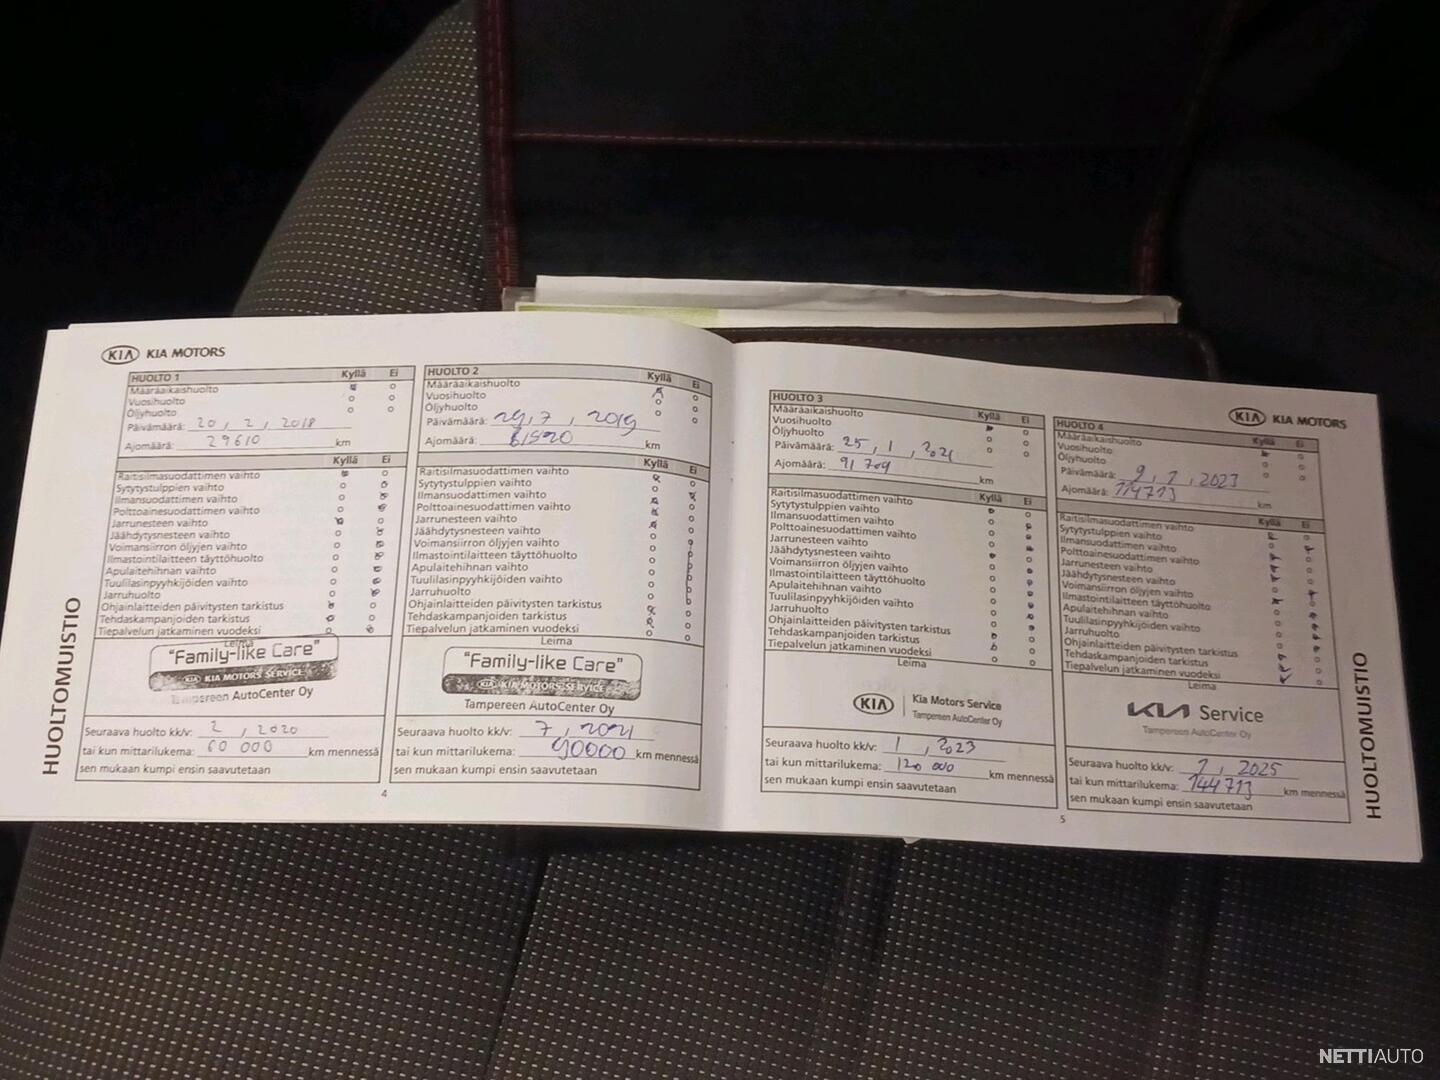 KIA KIA MOTORS
HUOLTO 1 Kyllä Ei
Määräaikaishuolto
Vuosihuolto
Öljyhuolto
Päivämäärä: 20, 2, 2018
Ajomäärä: 29610 km
Kyllä Ei
Raitisilmasuodattimen vaihto
Sytytystulppien vaihto
Ilmansuodattimen vaihto
Polttoainesuodattimen vaihto
Jarrunesteen vaihto
Jäähdytysnesteen vaihto
Voimansiirron öljyjen vaihto
Ilmastointilaitteen täyttöhuolto
Apulaitehihnan vaihto
Tuulilasinpyyhkijöiden vaihto
Jarruhuolto
Ohjainlaitteiden päivitysten tarkistus
Tehdaskampanjoiden tarkistus
Tiepalvelun jatkaminen vuodeksi
Leima
"Family-like Care"
KIA KIA MOTORS SERVICE
Tampereen AutoCenter Oy
Seuraava huolto kk/v: 2, 2020
tai kun mittarilukema: 60 000 km mennessä
sen mukaan kumpi ensin saavutetaan
HUOLTOMUISTIO
4
HUOLTO 2 Kyllä Ei
Määräaikaishuolto
Vuosihuolto
Öljyhuolto
Päivämäärä: 29, 7, 2019
Ajomäärä: 61520 km
Kyllä Ei
Raitisilmasuodattimen vaihto
Sytytystulppien vaihto
Ilmansuodattimen vaihto
Polttoainesuodattimen vaihto
Jarrunesteen vaihto
Jäähdytysnesteen vaihto
Voimansiirron öljyjen vaihto
Ilmastointilaitteen täyttöhuolto
Apulaitehihnan vaihto
Tuulilasinpyyhkijöiden vaihto
Jarruhuolto
Ohjainlaitteiden päivitysten tarkistus
Tehdaskampanjoiden tarkistus
Tiepalvelun jatkaminen vuodeksi
Leima
"Family-like Care"
KIA KIA MOTORS SERVICE
Tampereen AutoCenter Oy
Seuraava huolto kk/v: 7, 2021
tai kun mittarilukema: 90000 km mennessä
sen mukaan kumpi ensin saavutetaan
HUOLTO 3
Määräaikaishuolto Kyllä Ei
Vuosihuolto
Öljyhuolto
Päivämäärä: 25, 1, 2021
Ajomäärä: 91 709 km
Kyllä Ei
Raitisilmasuodattimen vaihto
Sytytystulppien vaihto
Ilmansuodattimen vaihto
Polttoainesuodattimen vaihto
Jarrunesteen vaihto
Jäähdytysnesteen vaihto
Voimansiirron öljyjen vaihto
Ilmastointilaitteen täyttöhuolto
Apulaitehihnan vaihto
Tuulilasinpyyhkijöiden vaihto
Jarruhuolto
Ohjainlaitteiden päivitysten tarkistus
Tehdaskampanjoiden tarkistus
Tiepalvelun jatkaminen vuodeksi
Leima
KIA Kia Motors Service
Tampereen AutoCenter Oy
Seuraava huolto kk/v: 1, 2023
tai kun mittarilukema: 120 000 km mennessä
sen mukaan kumpi ensin saavutetaan
5
KIA KIA MOTORS
HUOLTO 4
Määräaikaishuolto Kyllä Ei
Vuosihuolto
Öljyhuolto
Päivämäärä: 9, 1, 2023
Ajomäärä: 114713 km
Raitisilmasuodattimen vaihto Kyllä Ei
Sytytystulppien vaihto
Ilmansuodattimen vaihto
Polttoainesuodattimen vaihto
Jarrunesteen vaihto
Jäähdytysnesteen vaihto
Voimansiirron öljyjen vaihto
Ilmastointilaitteen täyttöhuolto
Apulaitehihnan vaihto
Tuulilasinpyyhkijöiden vaihto
Jarruhuolto
Ohjainlaitteiden päivitysten tarkistus
Tehdaskampanjoiden tarkistus
Tiepalvelun jatkaminen vuodeksi
Leima
KIA Service
Tampereen AutoCenter Oy
Seuraava huolto kk/v: 1, 2025
tai kun mittarilukema: 144713 km mennessä
sen mukaan kumpi ensin saavutetaan
HUOLTOMUISTIO
NETTIAUTO